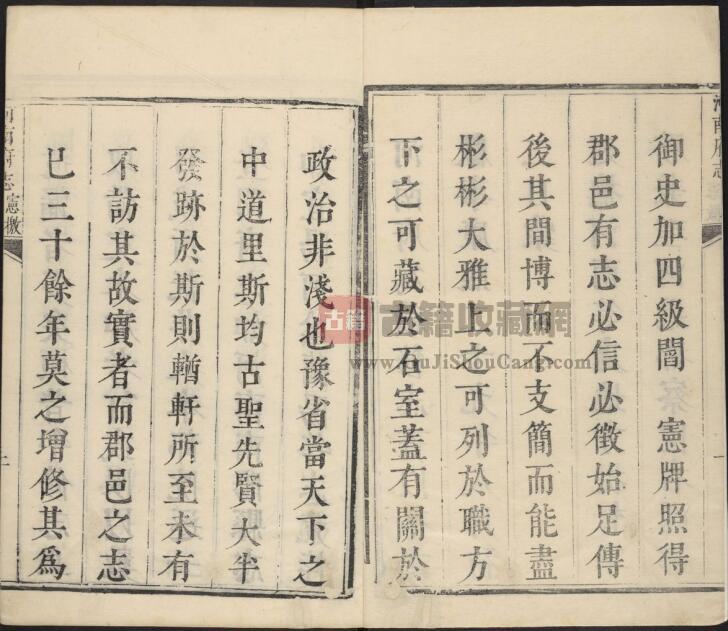 御史加四級閻　憲牌照得
郡邑有志必信必徵始足傳
後其間博而不支簡而能盡
彬彬大雅上之可列於職方
下之可藏於石室蓋有關於
政治非淺也豫省當天下之
中道里斯均古聖先賢大半
發跡於斯則輶軒所至未有
不訪其故實者而郡邑之志
已三十餘年莫之增修其為
府志憲檄
古籍
古籍收藏網
www.GuJiShouCang.com